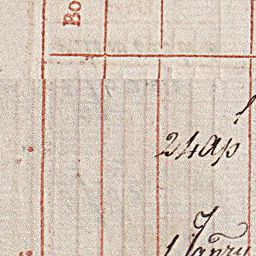 Bo
24 ap
1 Janry